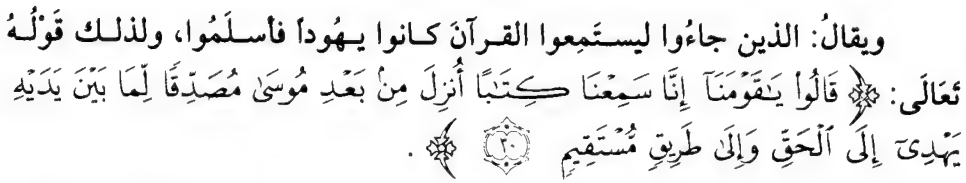 ويقالُ: الذين جاءُوا ليستَمِعوا القرآنَ كانوا يهُوداً فأسلَمُوا، ولذلك قَوْلُهُ
تَعَالَى: ﴿ قَالُوا۟ يَٰقَوْمَنَآ إِنَّا سَمِعْنَا كِتَٰبًا أُنزِلَ مِنۢ بَعْدِ مُوسَىٰ مُصَدِّقًا لِّمَا بَيْنَ يَدَيْهِ
يَهْدِىٓ إِلَى ٱلْحَقِّ وَإِلَىٰ طَرِيقٍ مُّسْتَقِيمٍ ٣٠ ﴾ .